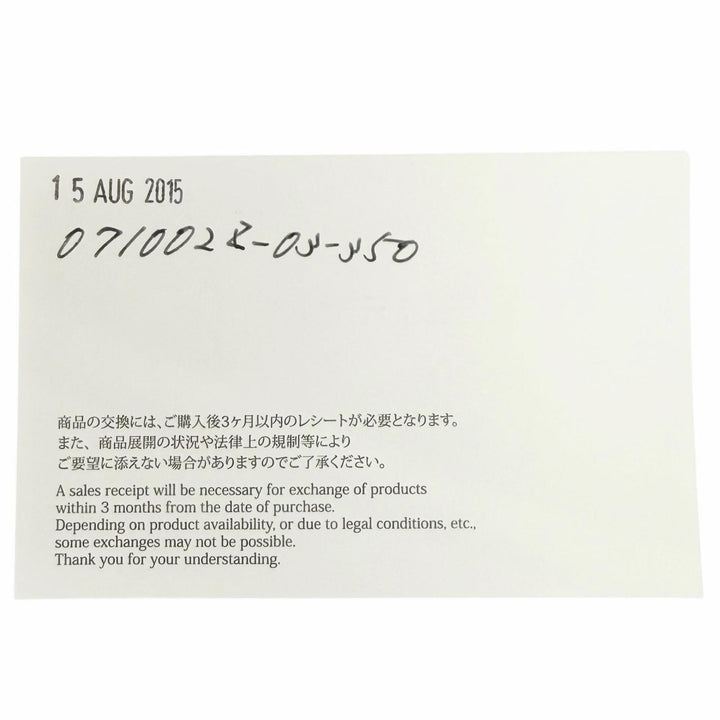 15 AUG 2015
071002Z-03-350
商品の交換には、ご購入後3ヶ月以内のレシートが必要となります。
また、商品展開の状況や法律上の規制等により
ご要望に添えない場合がありますのでご了承ください。
A sales receipt will be necessary for exchange of products
within 3 months from the date of purchase.
Depending on product availability, or due to legal conditions, etc.,
some exchanges may not be possible.
Thank you for your understanding.